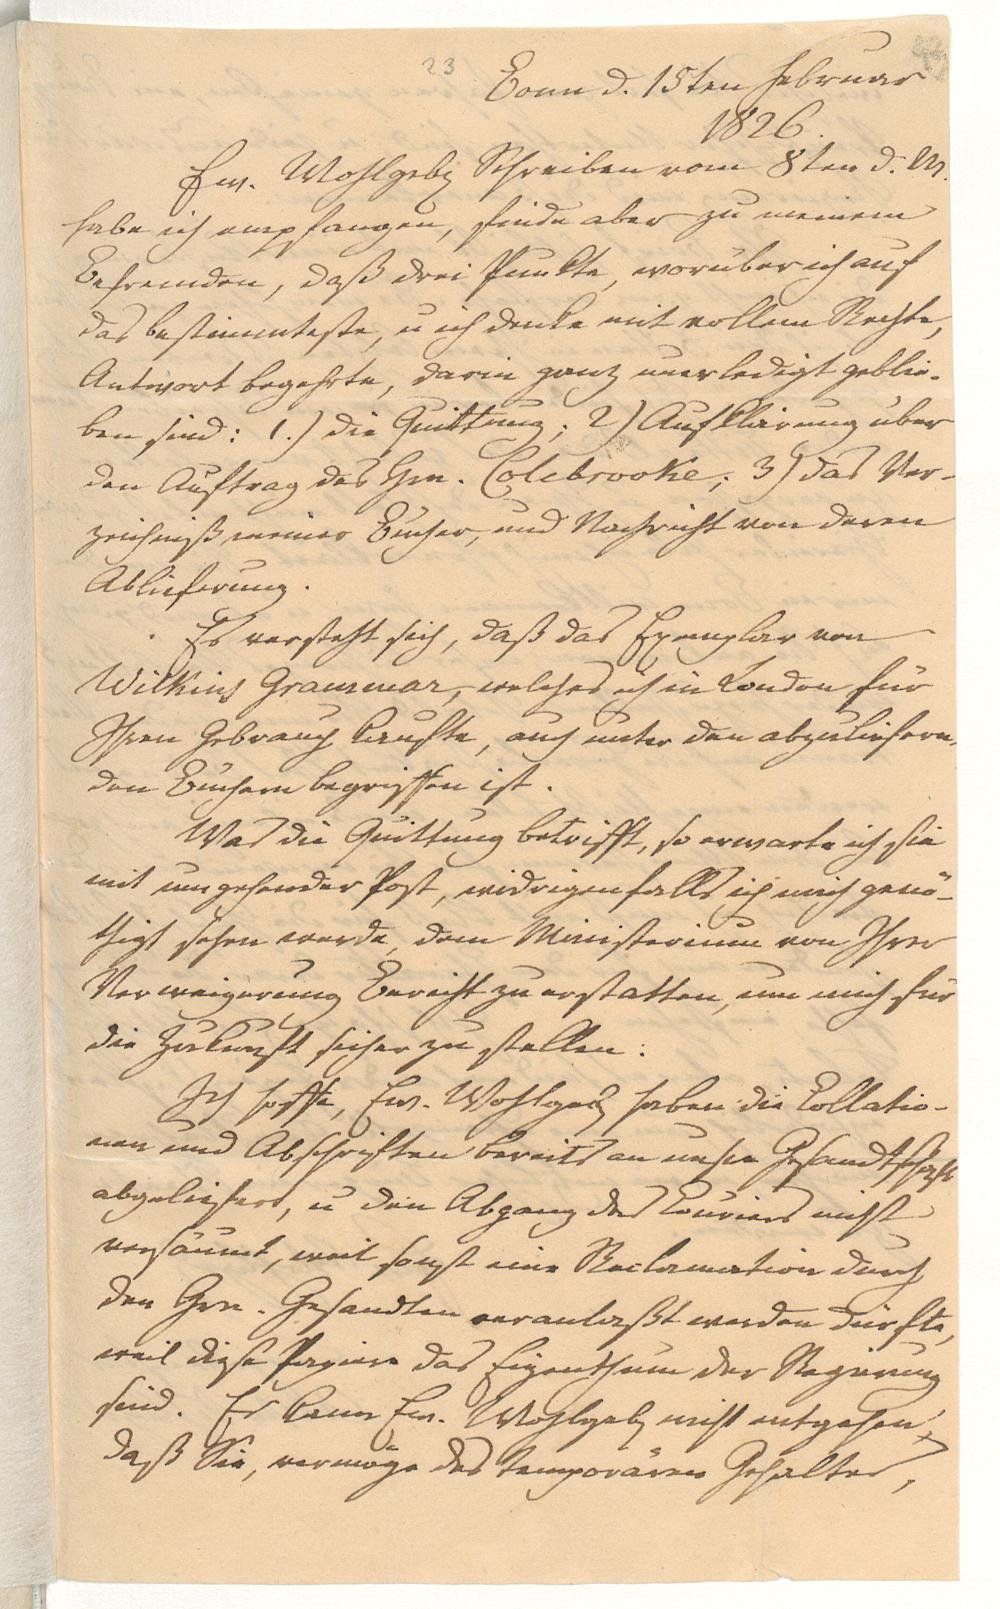 23
Bonn d. 15ten Februar
1826.
Ew. Wohlgeb Schreiben vom 8ten d. M.
habe ich empfangen, finde aber zu meinem
Befremden, daß drei Punkte, worüber ich auf
das bestimmteste, u ich denke mit vollem Rechte,
Antwort begehrte, darin ganz unerledigt geblie-
ben sind: 1.) die Quittung; 2) Aufklärung über
den Auftrag des Hrn. Colebrooke; 3) das Ver-
zeichniß meiner Bücher, und Nachricht von deren
Ablieferung.
Es versteht sich, daß das Exemplar von
Wilkins Grammar, welches ich in London für
Ihren Gebrauch kaufte, auch unter den abzuliefern-
den Büchern begriffen ist.
Was die Quittung betrifft, so erwarte ich sie
mit umgehender Post, widrigenfalls ich mich genö-
thigt sehen werde, dem Ministerium von Ihrer
Verweigerung Bericht zu erstatten, um mich für
die Zukunft sicher zu stellen.
Ich hoffe, Ew. Wohlgeb haben die Collatio-
nen und Abschriften bereits an unsre Gesandtschaft
abgeliefert, u den Abgang des Couriers nicht
versäumt, weil sonst eine Reclamation durch
den Hrn. Gesandten veranlaßt werden dürfte,
weil diese Papiere das Eigenthum der Regierung
sind. Es kann Ew. Wohlgeb nicht entgehen,
daß Sie, vermöge des temporären Gehaltes,